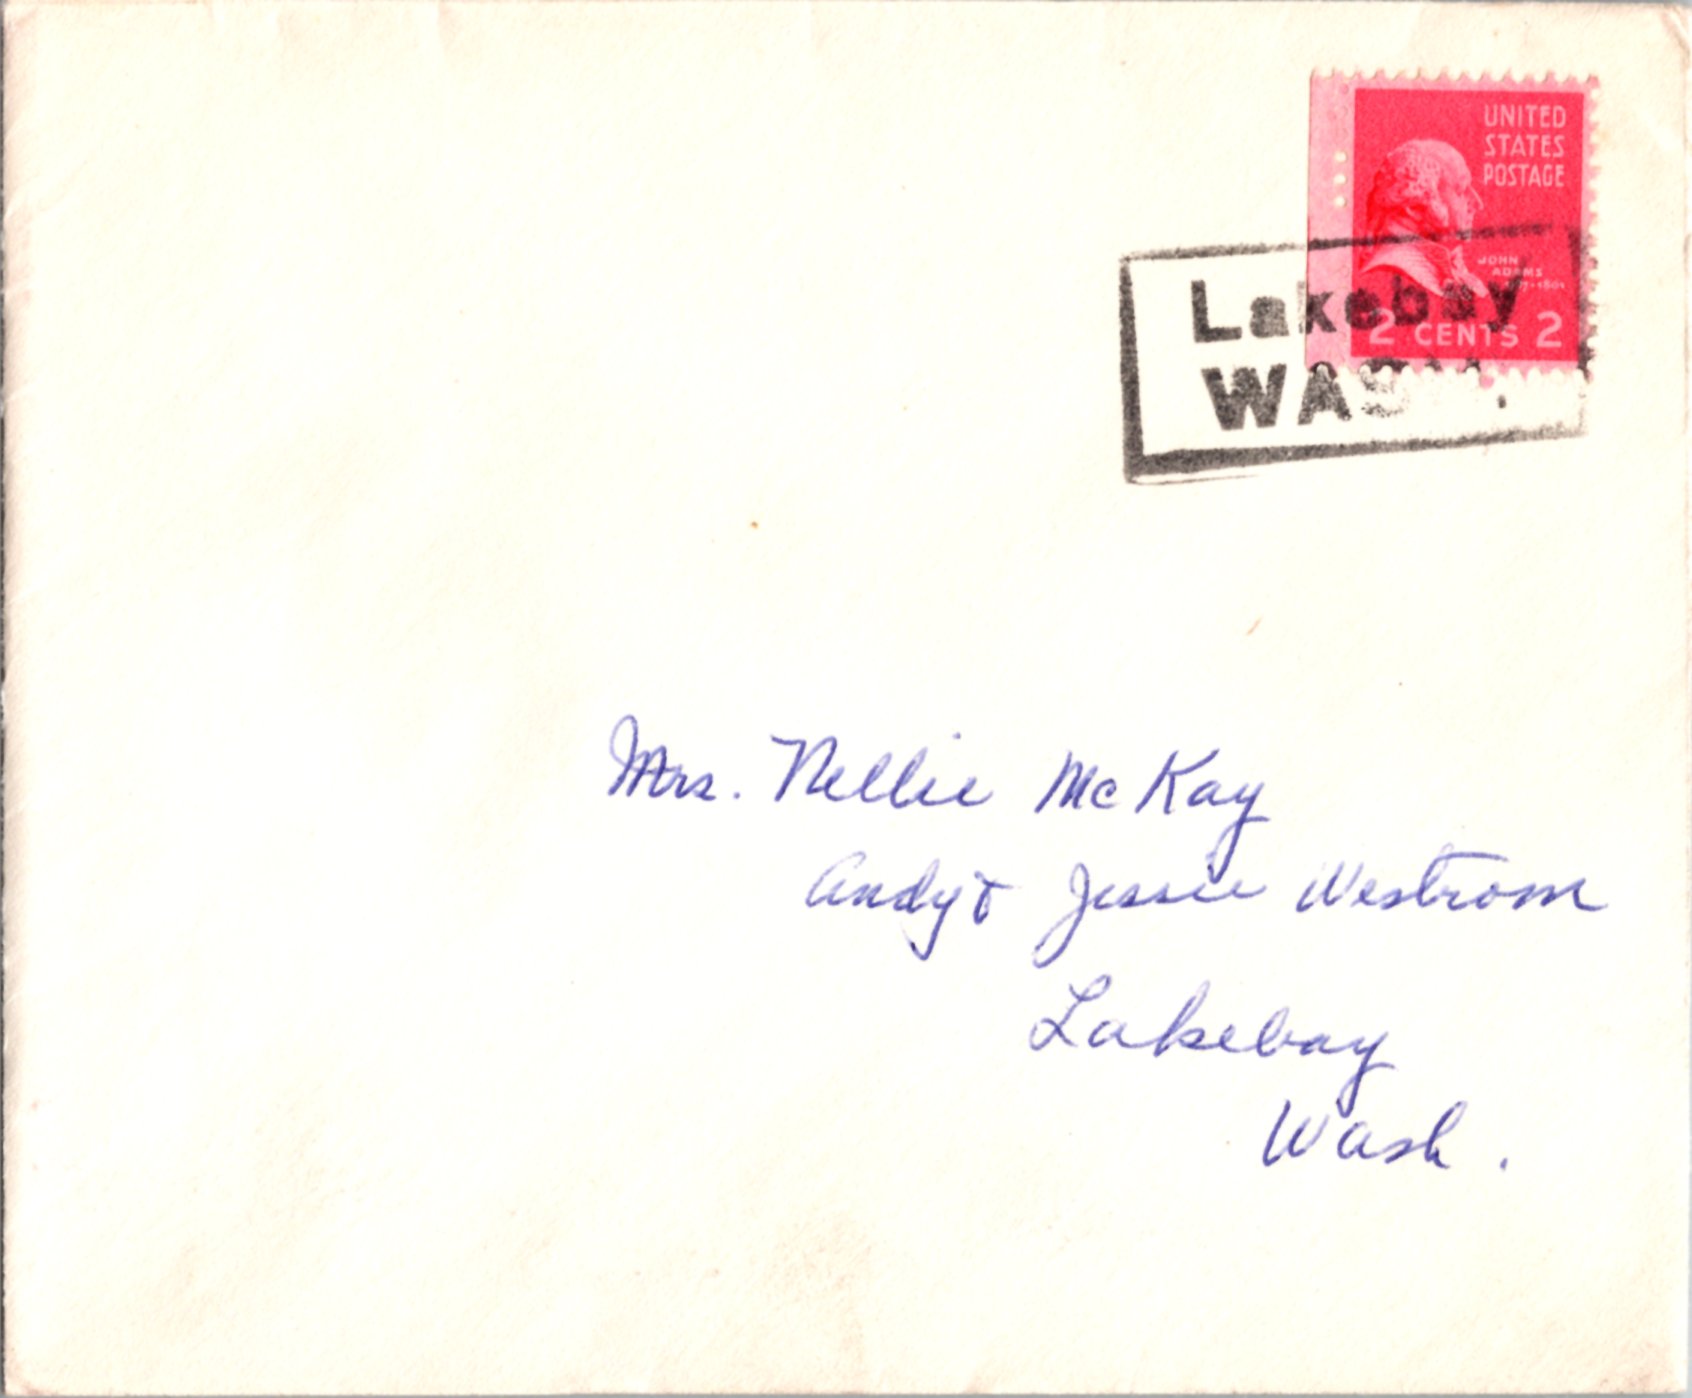 UNITED
STATES
POSTAGE
JOHN
ADAMS
2 CENTS 2
Lakebay
WASH.
Mrs. Nellie McKay
Andy & Jessie Westrom
Lakebay
Wash.